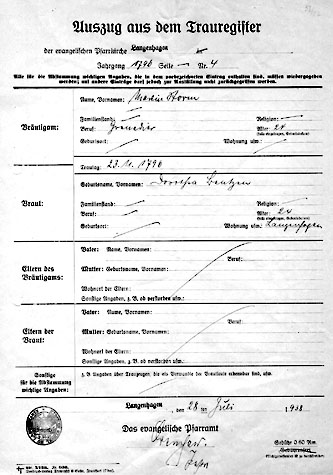 Auszug aus dem Trauregister
der evangelischen Pfarrkirche Langenhagen
Jahrgang 1796 Seite — Nr. 4
Alle für die Abstammung wichtigen Angaben, die in dem vorbezeichneten Eintrag enthalten sind, müssen wiedergegeben
werden; auf andere Einträge darf jedoch zur Ausfüllung nicht zurückgegriffen werden.
Bräutigam:
Name, Vornamen: Martin Storm
Familienstand: Religion:
Beruf: Grenadier Alter: 24
Geburtsort: Wohnung usw.:
Trauung: 23. 11. 1796
Braut:
Geburtsname, Vornamen: Dorothea
Familienstand: Religion:
Beruf: Alter: 24
Geburtsort: Wohnung usw.: Langenhagen
Eltern des
Bräutigams:
Vater: Name, Vornamen:
Beruf:
Mutter: Geburtsname, Vornamen:
Wohnort der Eltern:
Sonstige Angaben, z. B. ob verstorben usw.:
Eltern der
Braut:
Vater: Name, Vornamen:
Beruf:
Mutter: Geburtsname, Vornamen:
Wohnort der Eltern:
Sonstige Angaben, z. B. ob verstorben usw.:
Sonstige
für die Abstammung
wichtige Angaben:
z. B. Angaben über Trauzeugen, die als Verwandte der Brautleute erkennbar sind, usw.
Langenhagen, den 28. Juli 1938
Das evangelische Pfarramt
Gebühr 0.60 Rm.
Gebührenfrei